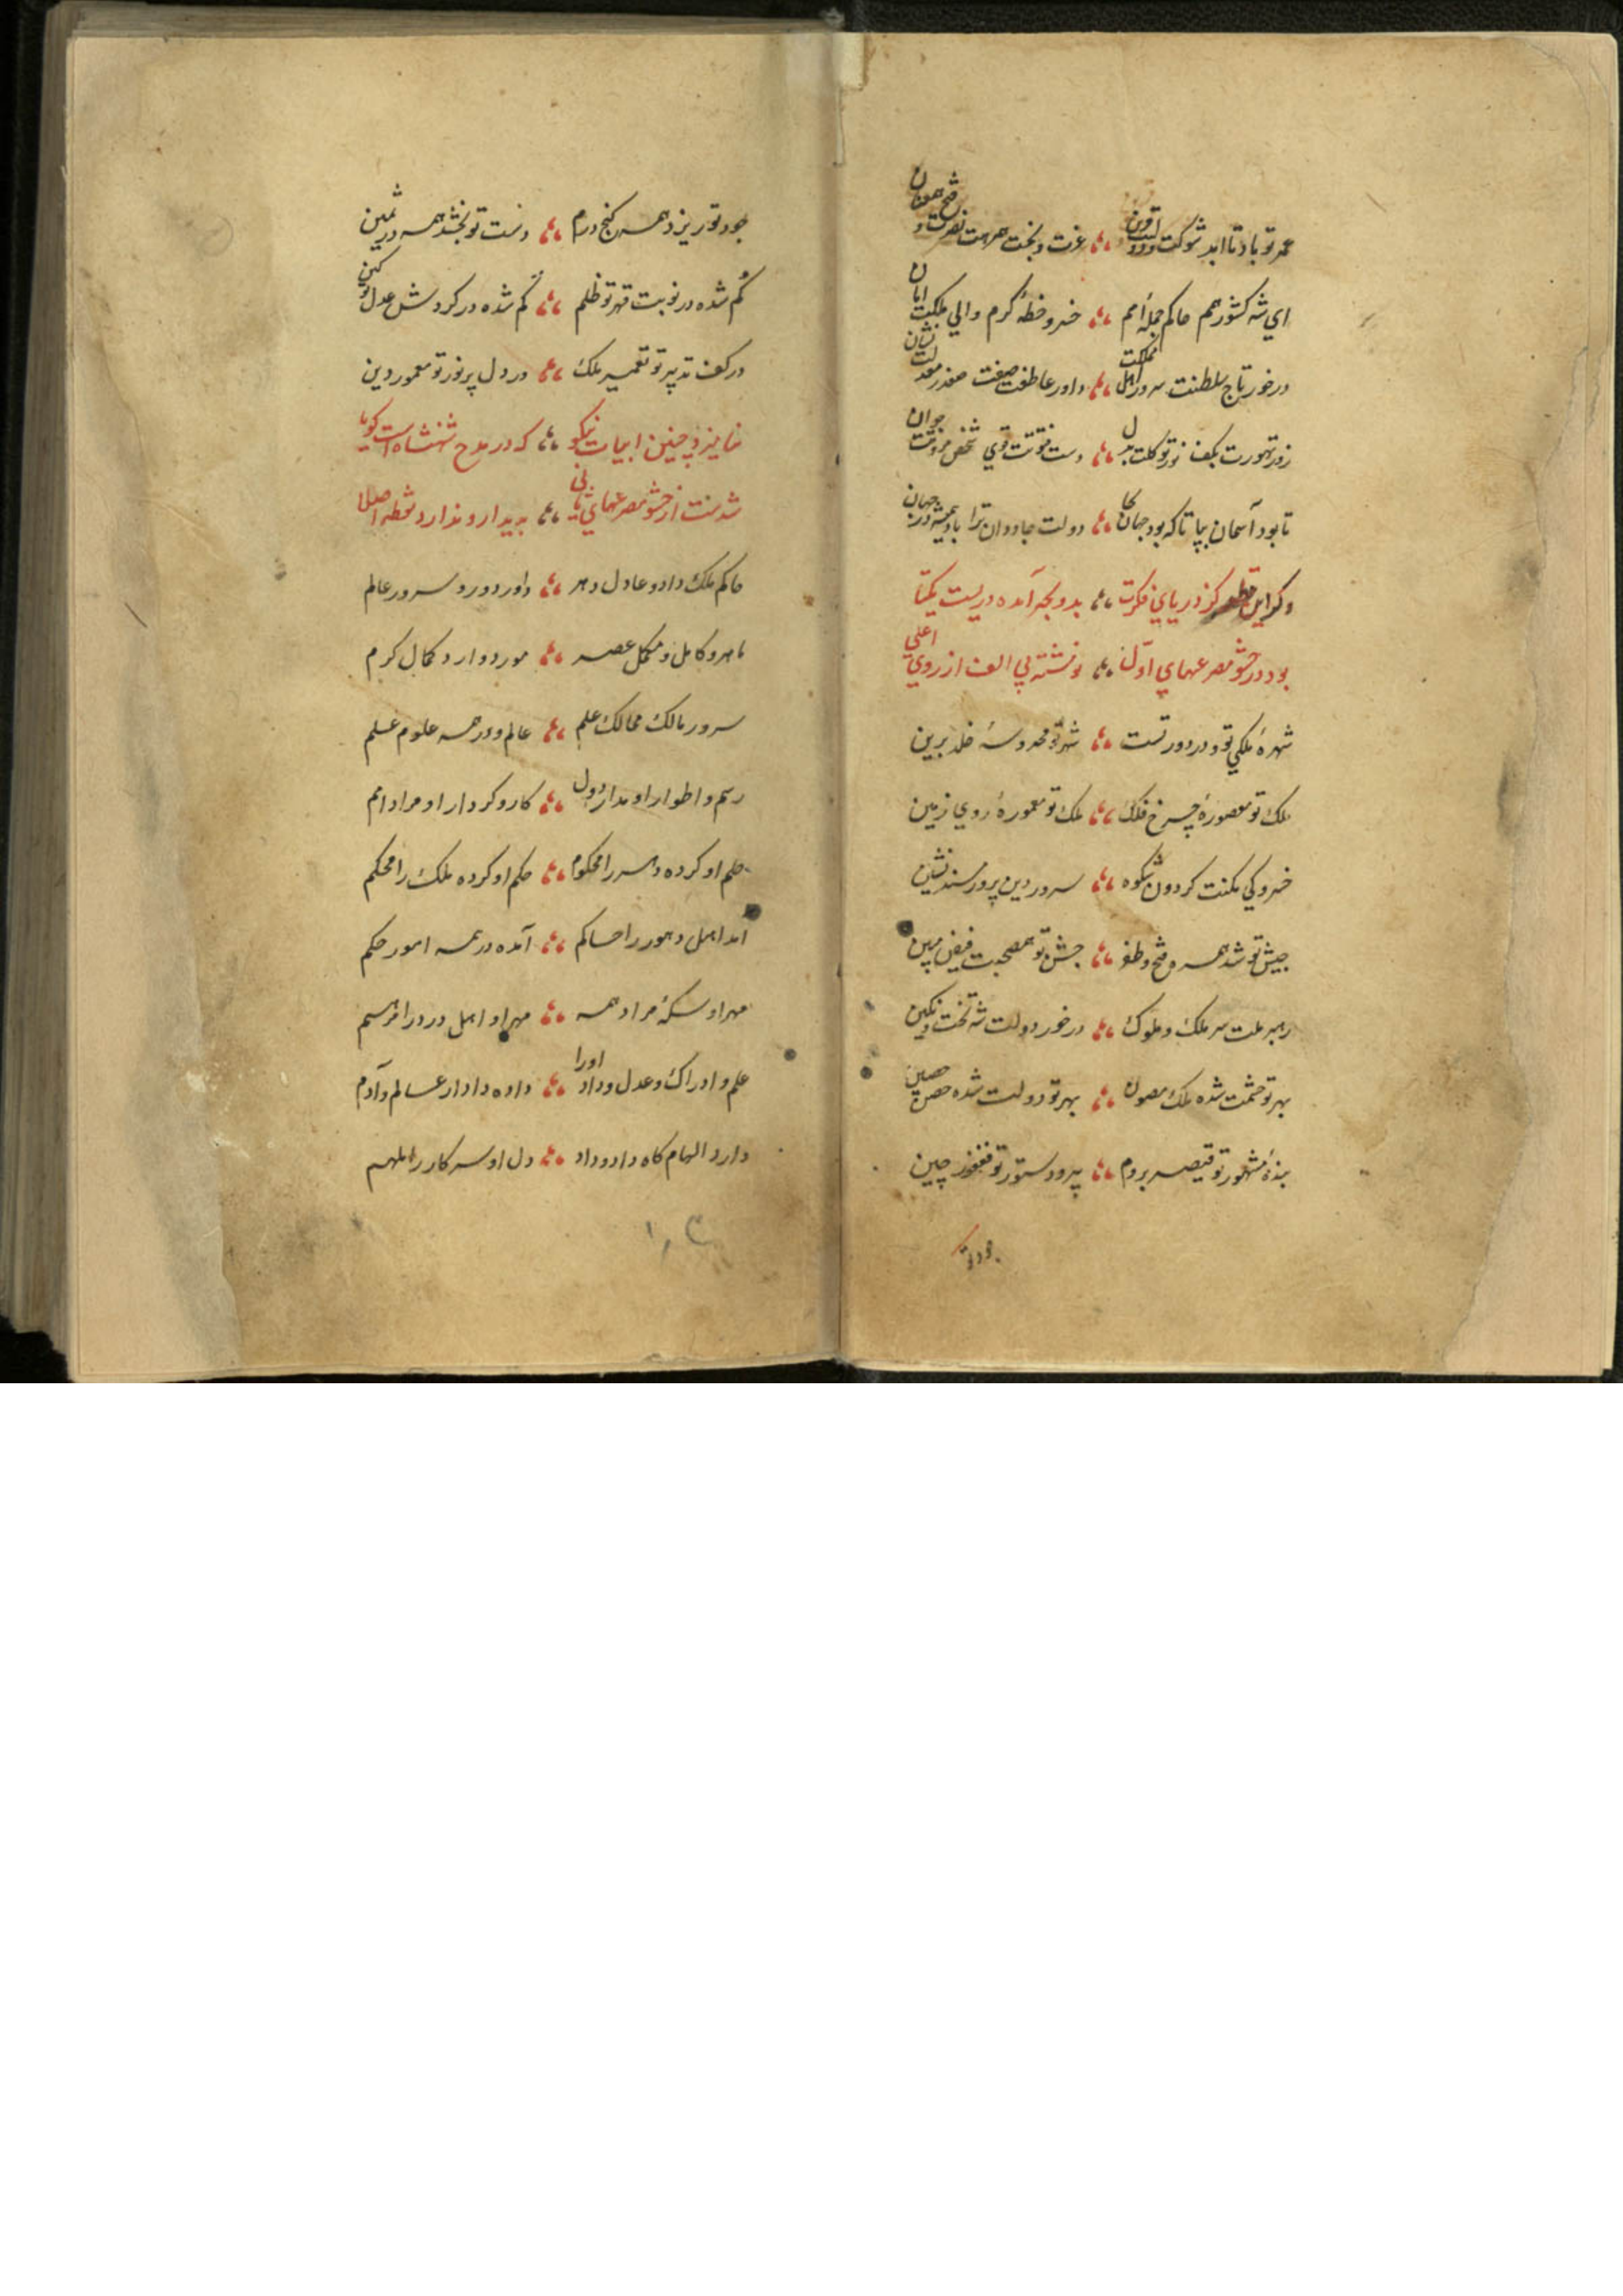 عمر تو باد تا ابد شوکت و دولت قرین ؞ عزت و بخت همرهت نصرت و فتح همعنان
اي شه کشور همم حاکم جملهٔ امم ؞ خسرو خطهٔ کرم والي ملکت امان
درخور تاج سلطنت سرور اهل مملکت ؞ داور عاطفت صفت صفدر معدلت نشان
زور تهورت بکف نور تو کلت بدل ؞ دست فتوتت قوي شخص مروتت جوان
تا بود آسمان بپا تا که بود جهان بجا ؞ دولت جاودان ترا باد همیشه در جهان
وکر این قطعه کز دریاي فکرت ؞ بدو بحر آمده دریست یکتا
بود در حشو مصرعهاي اول ؞ نوشته بي الف از روي اعلي
شهرهٔ ملکي تو و در دور تست ؞ شهر تو محروسهٔ خلد برین
ملک تو مقصورهٔ چرخ فلک ؞ ملک تو معمورهٔ روي زمین
خسرو کي مکنت کردون شکوه ؞ سرور دین پرور مسند نشین
جیش تو شد همره فتح و ظفر ؞ جشن تو همصحبت فیض مبین
رهبر ملت سر ملک و ملوک ؞ درخور دولت شه تخت و نکین
بهر تو حشمت شده ملک مصون ؞ بهر تو دولت شده حصن حصین
بندهٔ مشهور تو قیصر بروم ؞ پیرو دستور تو فغفور چین
جود تو
جود تو ریزد همه کنج درم ؞ دست تو بخشد همه در ثمین
کم شده در نوبت قهر تو ظلم ؞ کم شده در کردش عدل تو کین
در کف تدبیر تو تعمیر ملک ؞ در دل پر نور تو معمور دین
نمایزد چنین ابیات نیکو ؞ که در مدح شهنشاه است کویا
شدست از حشو مصرعهاي ثاني ؞ پدیدار و ندارد نقطه اصلا
حاکم ملک داد و عادل دهر ؞ داور دور و سرور عالم
ماهر و کامل و مکمل عصر ؞ مورد وارد کمال کرم
سرور مالک ممالک علم ؞ عالم و در همه علوم علم
رسم و اطوار او مدار دول ؞ کار و کردار او مراد امم
حلم او کرده دهر را محکوم ؞ حکم او کرده ملک را محکم
آمد اهل دهور را حاکم ؞ آمده در همه امور حکم
مهر او سکهٔ مراد همه ؞ مهر او اهل درد را مرهم
علم و ادراک و عدل و داد او را ؞ داده دادار عالم و آدم
دارد الهام کاه داد و داد ؞ دل او سر کار را ملهم